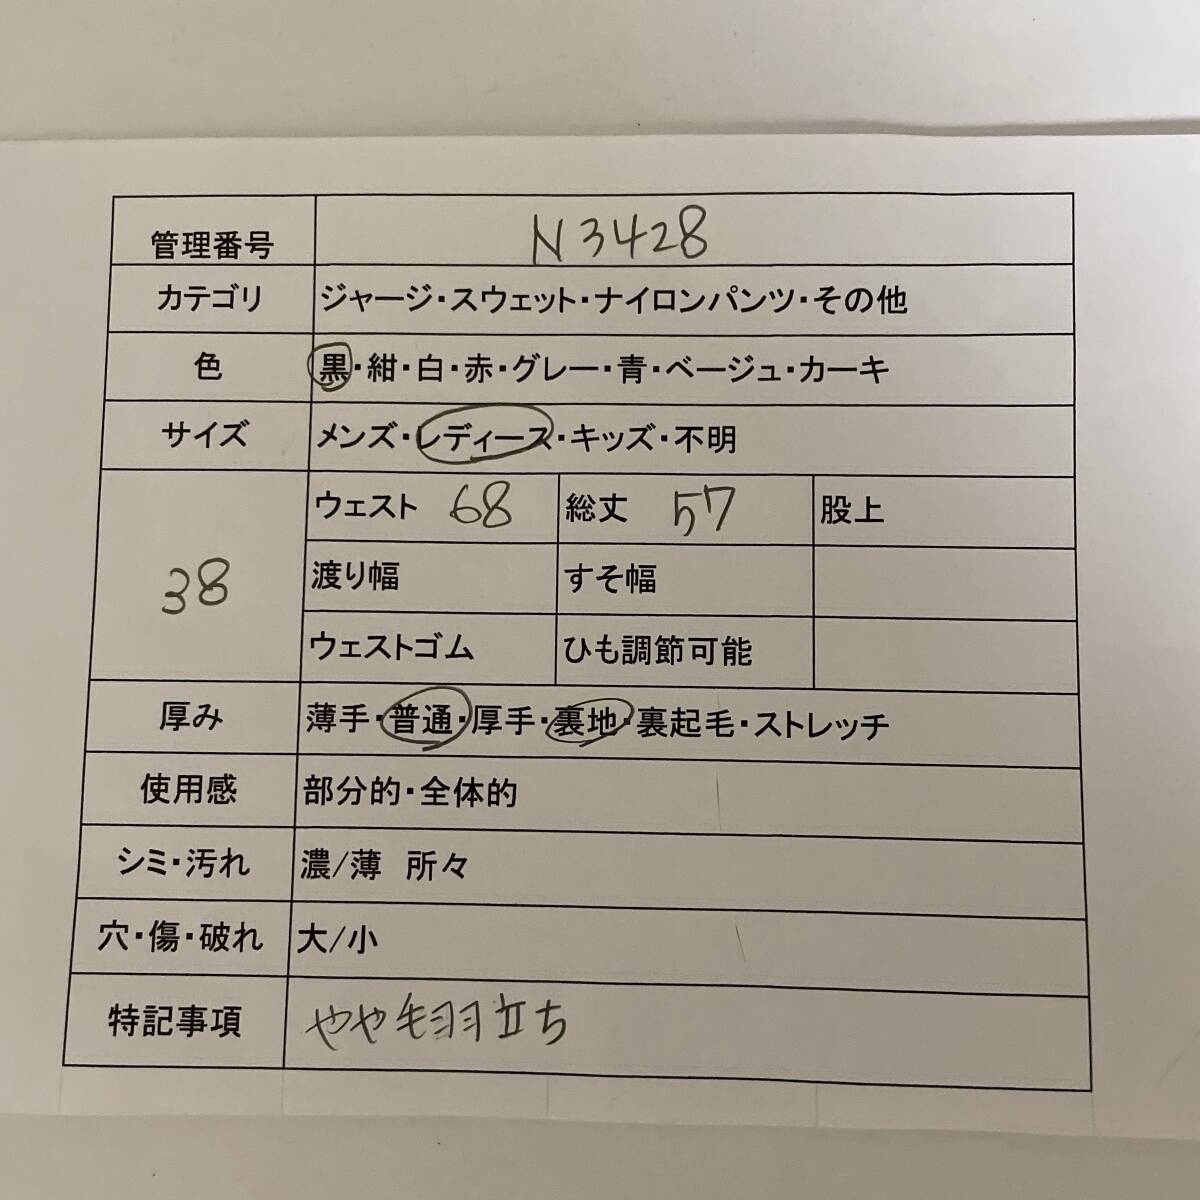 管理番号 N3428
カテゴリ ジャージ・スウェット・ナイロンパンツ・その他
色 黒・紺・白・赤・グレー・青・ベージュ・カーキ
サイズ メンズ・レディース・キッズ・不明
38
ウェスト 68 総丈 57 股上
渡り幅 すそ幅
ウェストゴム ひも調節可能
厚み 薄手・普通・厚手・裏地・裏起毛・ストレッチ
使用感 部分的・全体的
シミ・汚れ 濃/薄 所々
穴・傷・破れ 大/小
特記事項 やや毛羽立ち